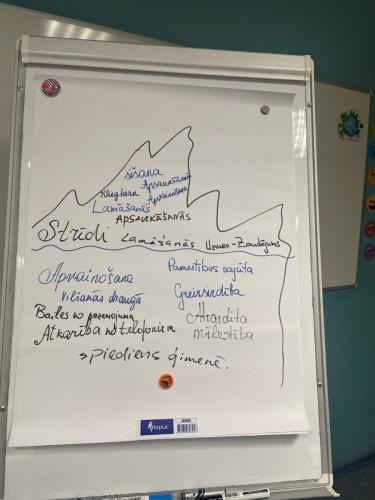 sišana
Kliegšana Apsaukāšana
Lamāšanās Apvainošana
APSAUKĀŠANĀS
Strīdi Lamāšanās Uzvara-Zaudējums
Apvainošana Pamestības sajūta
Vilšanās draugā Greizsirdība
Bailes no pazemojuma Atraidīta
Atkarība no telefoniem mīlestība
spiediens ģimenē.
forpus